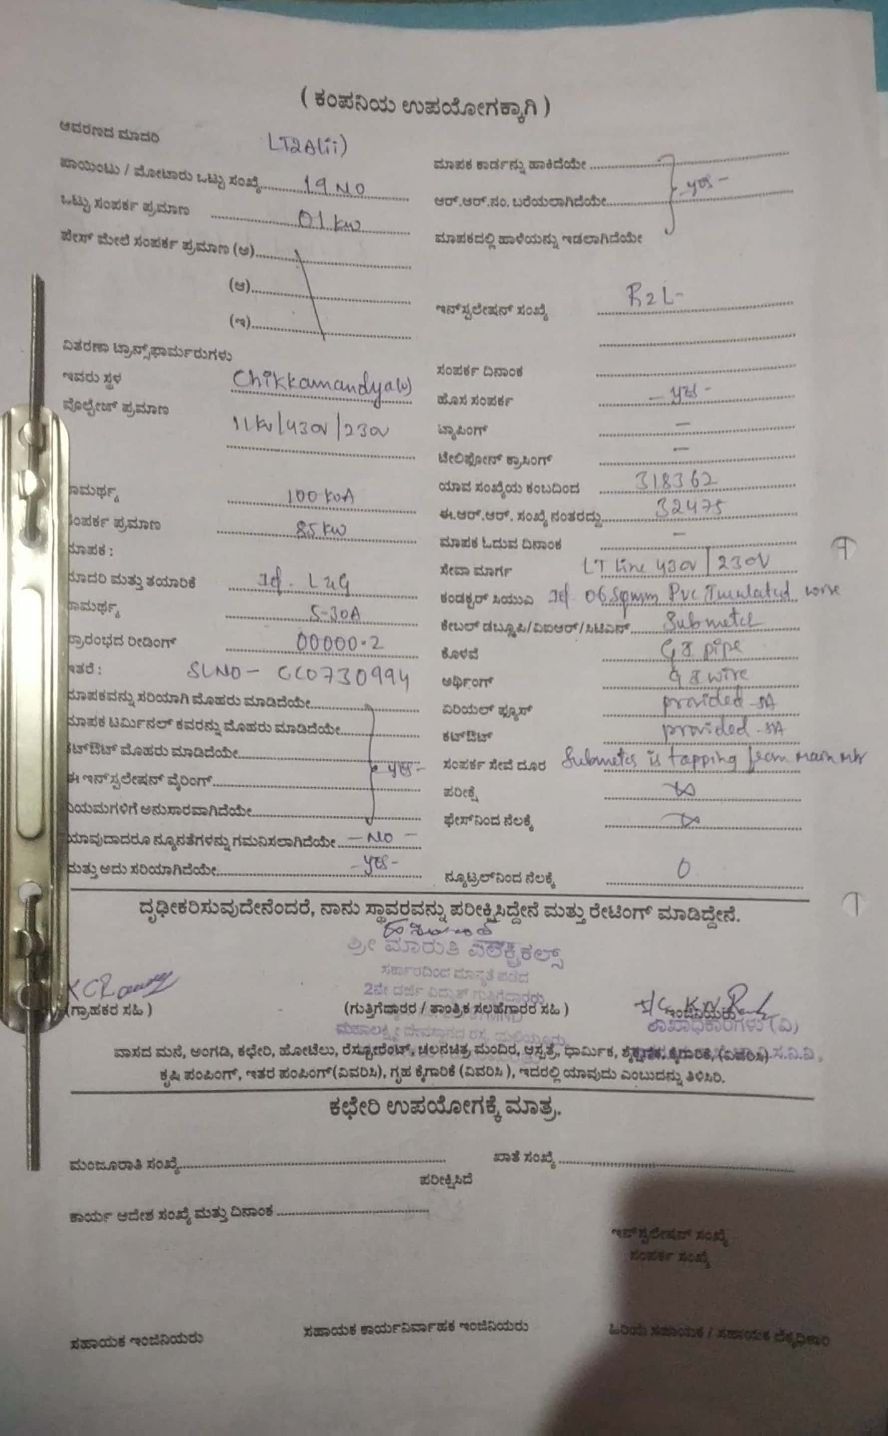 ( ಕಂಪನಿಯ ಉಪಯೋಗಕ್ಕಾಗಿ )
ಆವರಣದ ಮಾದರಿ LT2A(ii)
ಪಾಯಿಂಟು / ಮೋಟಾರು ಒಟ್ಟು ಸಂಖ್ಯೆ 19 NO
ಒಟ್ಟು ಸಂಪರ್ಕ ಪ್ರಮಾಣ 01 kw
ಫೇಸ್ ಮೇಲೆ ಸಂಪರ್ಕ ಪ್ರಮಾಣ (ಅ)
(ಆ)
(ಇ)
ವಿತರಣಾ ಟ್ರಾನ್ಸ್‌ಫಾರ್ಮರುಗಳು
ಇವರು ಸ್ಥಳ Chikkamandya(v)
ವೊಲ್ಟೇಜ್ ಪ್ರಮಾಣ 11kv/430v/230v
ಸಾಮರ್ಥ್ಯ 100 kvA
ಸಂಪರ್ಕ ಪ್ರಮಾಣ 85 kw
ಮಾಪಕ :
ಮಾದರಿ ಮತ್ತು ತಯಾರಿಕೆ 1ф. L&G
ಸಾಮರ್ಥ್ಯ 5-30A
ಪ್ರಾರಂಭದ ರೀಡಿಂಗ್ 00000.2
ಇತರೆ : SLNO - CC0730994
ಮಾಪಕವನ್ನು ಸರಿಯಾಗಿ ಮೊಹರು ಮಾಡಿದೆಯೇ
ಮಾಪಕ ಟರ್ಮಿನಲ್ ಕವರನ್ನು ಮೊಹರು ಮಾಡಿದೆಯೇ
ಕಟ್‌ಔಟ್ ಮೊಹರು ಮಾಡಿದೆಯೇ yes-
ಈ ಇನ್‌ಸ್ಟಲೇಷನ್ ವೈರಿಂಗ್
ನಿಯಮಗಳಿಗೆ ಅನುಸಾರವಾಗಿದೆಯೇ
ಯಾವುದಾದರೂ ನ್ಯೂನತೆಗಳನ್ನು ಗಮನಿಸಲಾಗಿದೆಯೇ - NO -
ಮತ್ತು ಅದು ಸರಿಯಾಗಿದೆಯೇ - yes -
ಮಾಪಕ ಕಾರ್ಡನ್ನು ಹಾಕಿದೆಯೇ
ಆರ್.ಆರ್.ನಂ. ಬರೆಯಲಾಗಿದೆಯೇ yes -
ಮಾಪಕದಲ್ಲಿ ಹಾಳೆಯನ್ನು ಇಡಲಾಗಿದೆಯೇ
ಇನ್‌ಸ್ಟಲೇಷನ್ ಸಂಖ್ಯೆ R2L-
ಸಂಪರ್ಕ ದಿನಾಂಕ
ಹೊಸ ಸಂಪರ್ಕ - yes -
ಟ್ಯಾಪಿಂಗ್ -
ಟೆಲಿಫೋನ್ ಕ್ರಾಸಿಂಗ್ -
ಯಾವ ಸಂಖ್ಯೆಯ ಕಂಬದಿಂದ 318362
ಈ.ಆರ್.ಆರ್. ಸಂಖ್ಯೆ ನಂತರದ್ದು 32475
ಮಾಪಕ ಓದುವ ದಿನಾಂಕ -
ಸೇವಾ ಮಾರ್ಗ LT line 430v/230V
ಕಂಡಕ್ಟರ್ ಸಿಯುವಿ 1ф 06 Sqmm Pvc Insulated wire
ಕೇಬಲ್ ಡಬ್ಲ್ಯೂಪಿ/ವಿಐಆರ್/ಸಿಟಿಎಸ್ Submeter
ಕೊಳವೆ GI pipe
ಅರ್ಥಿಂಗ್ GI wire
ಏರಿಯಲ್ ಫ್ಯೂಸ್ provided -5A
ಕಟ್‌ಔಟ್ provided -5A
ಸಂಪರ್ಕ ಸೇವೆ ದೂರ Submeter is tapping from main mtr
ಪರೀಕ್ಷೆ ∞
ಫೇಸ್‌ನಿಂದ ನೆಲಕ್ಕೆ ∞
ನ್ಯೂಟ್ರಲ್‌ನಿಂದ ನೆಲಕ್ಕೆ 0
ದೃಢೀಕರಿಸುವುದೇನೆಂದರೆ, ನಾನು ಸ್ಥಾವರವನ್ನು ಪರೀಕ್ಷಿಸಿದ್ದೇನೆ ಮತ್ತು ರೇಟಿಂಗ್ ಮಾಡಿದ್ದೇನೆ.
ಶ್ರೀ ಮಾರುತಿ ಎಲೆಕ್ಟ್ರಿಕಲ್ಸ್
ಸರ್ಕಾರದಿಂದ ಮಾನ್ಯತೆ ಪಡೆದ
2ನೇ ದರ್ಜೆ ವಿದ್ಯುತ್ ಗುತ್ತಿಗೆದಾರರು
(ಗ್ರಾಹಕರ ಸಹಿ ) (ಗುತ್ತಿಗೆದಾರರ / ತಾಂತ್ರಿಕ ಸಲಹೆಗಾರರ ಸಹಿ ) ಇಂಜಿನಿಯರು
ಶಾಖಾಧಿಕಾರಿಗಳು (ವಿ)
ವಾಸದ ಮನೆ, ಅಂಗಡಿ, ಕಛೇರಿ, ಹೋಟೆಲು, ರೆಸ್ಟೋರೆಂಟ್, ಚಲನಚಿತ್ರ ಮಂದಿರ, ಆಸ್ಪತ್ರೆ, ಧಾರ್ಮಿಕ, ಶೈಕ್ಷಣಿಕ, ಕೈಗಾರಿಕೆ, (ವಿವರಿಸಿ)
ಕೃಷಿ ಪಂಪಿಂಗ್, ಇತರ ಪಂಪಿಂಗ್(ವಿವರಿಸಿ), ಗೃಹ ಕೈಗಾರಿಕೆ (ವಿವರಿಸಿ ), ಇದರಲ್ಲಿ ಯಾವುದು ಎಂಬುದನ್ನು ತಿಳಿಸಿರಿ.
ಕಛೇರಿ ಉಪಯೋಗಕ್ಕೆ ಮಾತ್ರ.
ಮಂಜೂರಾತಿ ಸಂಖ್ಯೆ ಖಾತೆ ಸಂಖ್ಯೆ
ಪರೀಕ್ಷಿಸಿದೆ
ಕಾರ್ಯ ಆದೇಶ ಸಂಖ್ಯೆ ಮತ್ತು ದಿನಾಂಕ
ಇನ್‌ಸ್ಟಲೇಷನ್ ಸಂಖ್ಯೆ
ಸಂಪರ್ಕ ಸಂಖ್ಯೆ
ಸಹಾಯಕ ಇಂಜಿನಿಯರು ಸಹಾಯಕ ಕಾರ್ಯನಿರ್ವಾಹಕ ಇಂಜಿನಿಯರು ಹಿರಿಯ ಸಹಾಯಕ / ಸಹಾಯಕ ಲೆಕ್ಕಾಧಿಕಾರಿ